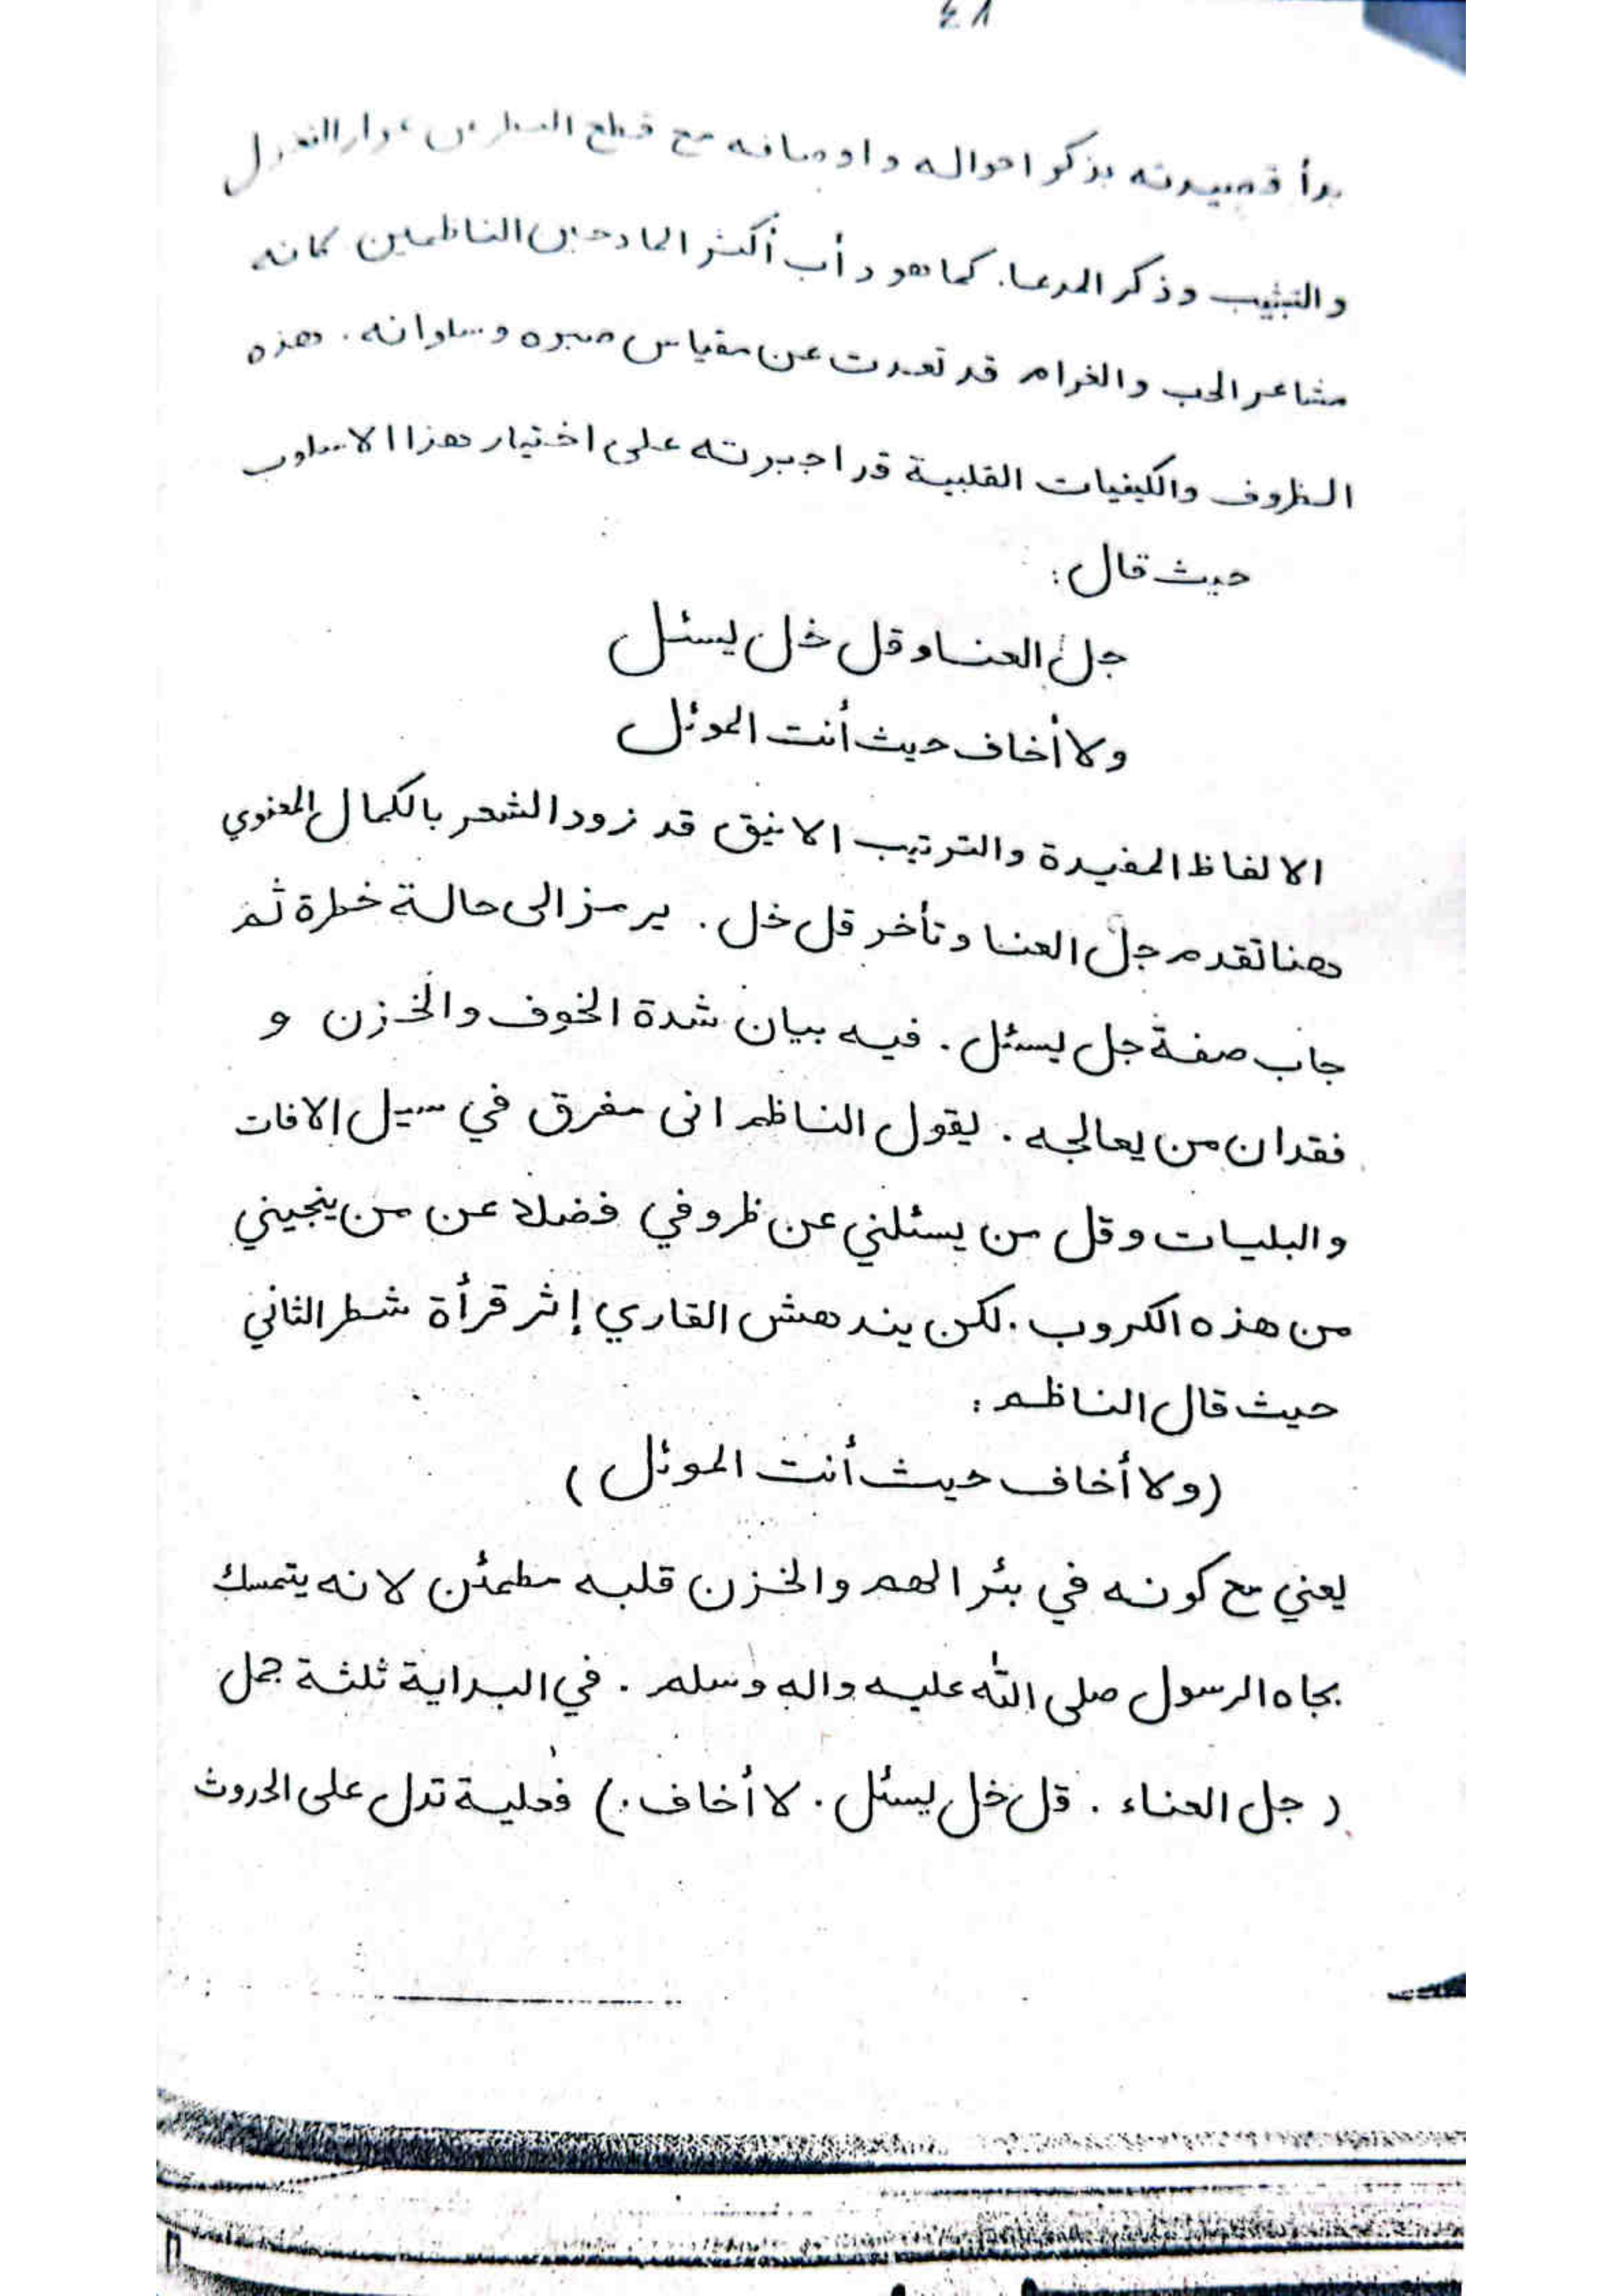 ٤٨
بدأ قصيدته بذكر احواله واوصافه مع قطع النظر عن
والتشبيب وذكر المدعا. كما هو دأب أكثر المادحين الناظمين كانه
مشاعر الحب والغرام قد تعدت عن مقياس صبره وسلوانه. هذه
الظروف والكيفيات القلبية قد اجبرته على اختيار هذا الاسلوب
حيث قال:
جل العنا وقل خل يسئل
ولا أخاف حيث أنت الموئل
الالفاظ المفيدة والترتيب الانيق قد زود الشعر بالكمال المعنوي
هنا تقدم جل العنا وتأخر قل خل. يرمز الى حالة خطرة ثم
جاب صفة جل يسئل. فيه بيان شدة الخوف والخزن و
فقدان من يعالجه. يقول الناظم انى مغرق في سيل الافات
والبليات وقل من يسئلني عن ظروفي فضلا عن من ينجيني
من هذه الكروب. لكن يندهش القاري إثر قرأة شطر الثاني
حيث قال الناظم:
(ولا أخاف حيث أنت الموئل)
يعني مع كونه في بئر الهم والخزن قلبه مطمئن لانه يتمسك
بجاه الرسول صلى الله عليه واله وسلم. في البداية ثلثة جمل
(جل العناء. قل خل يسئل. لا أخاف.) فعلية تدل على الحدوث